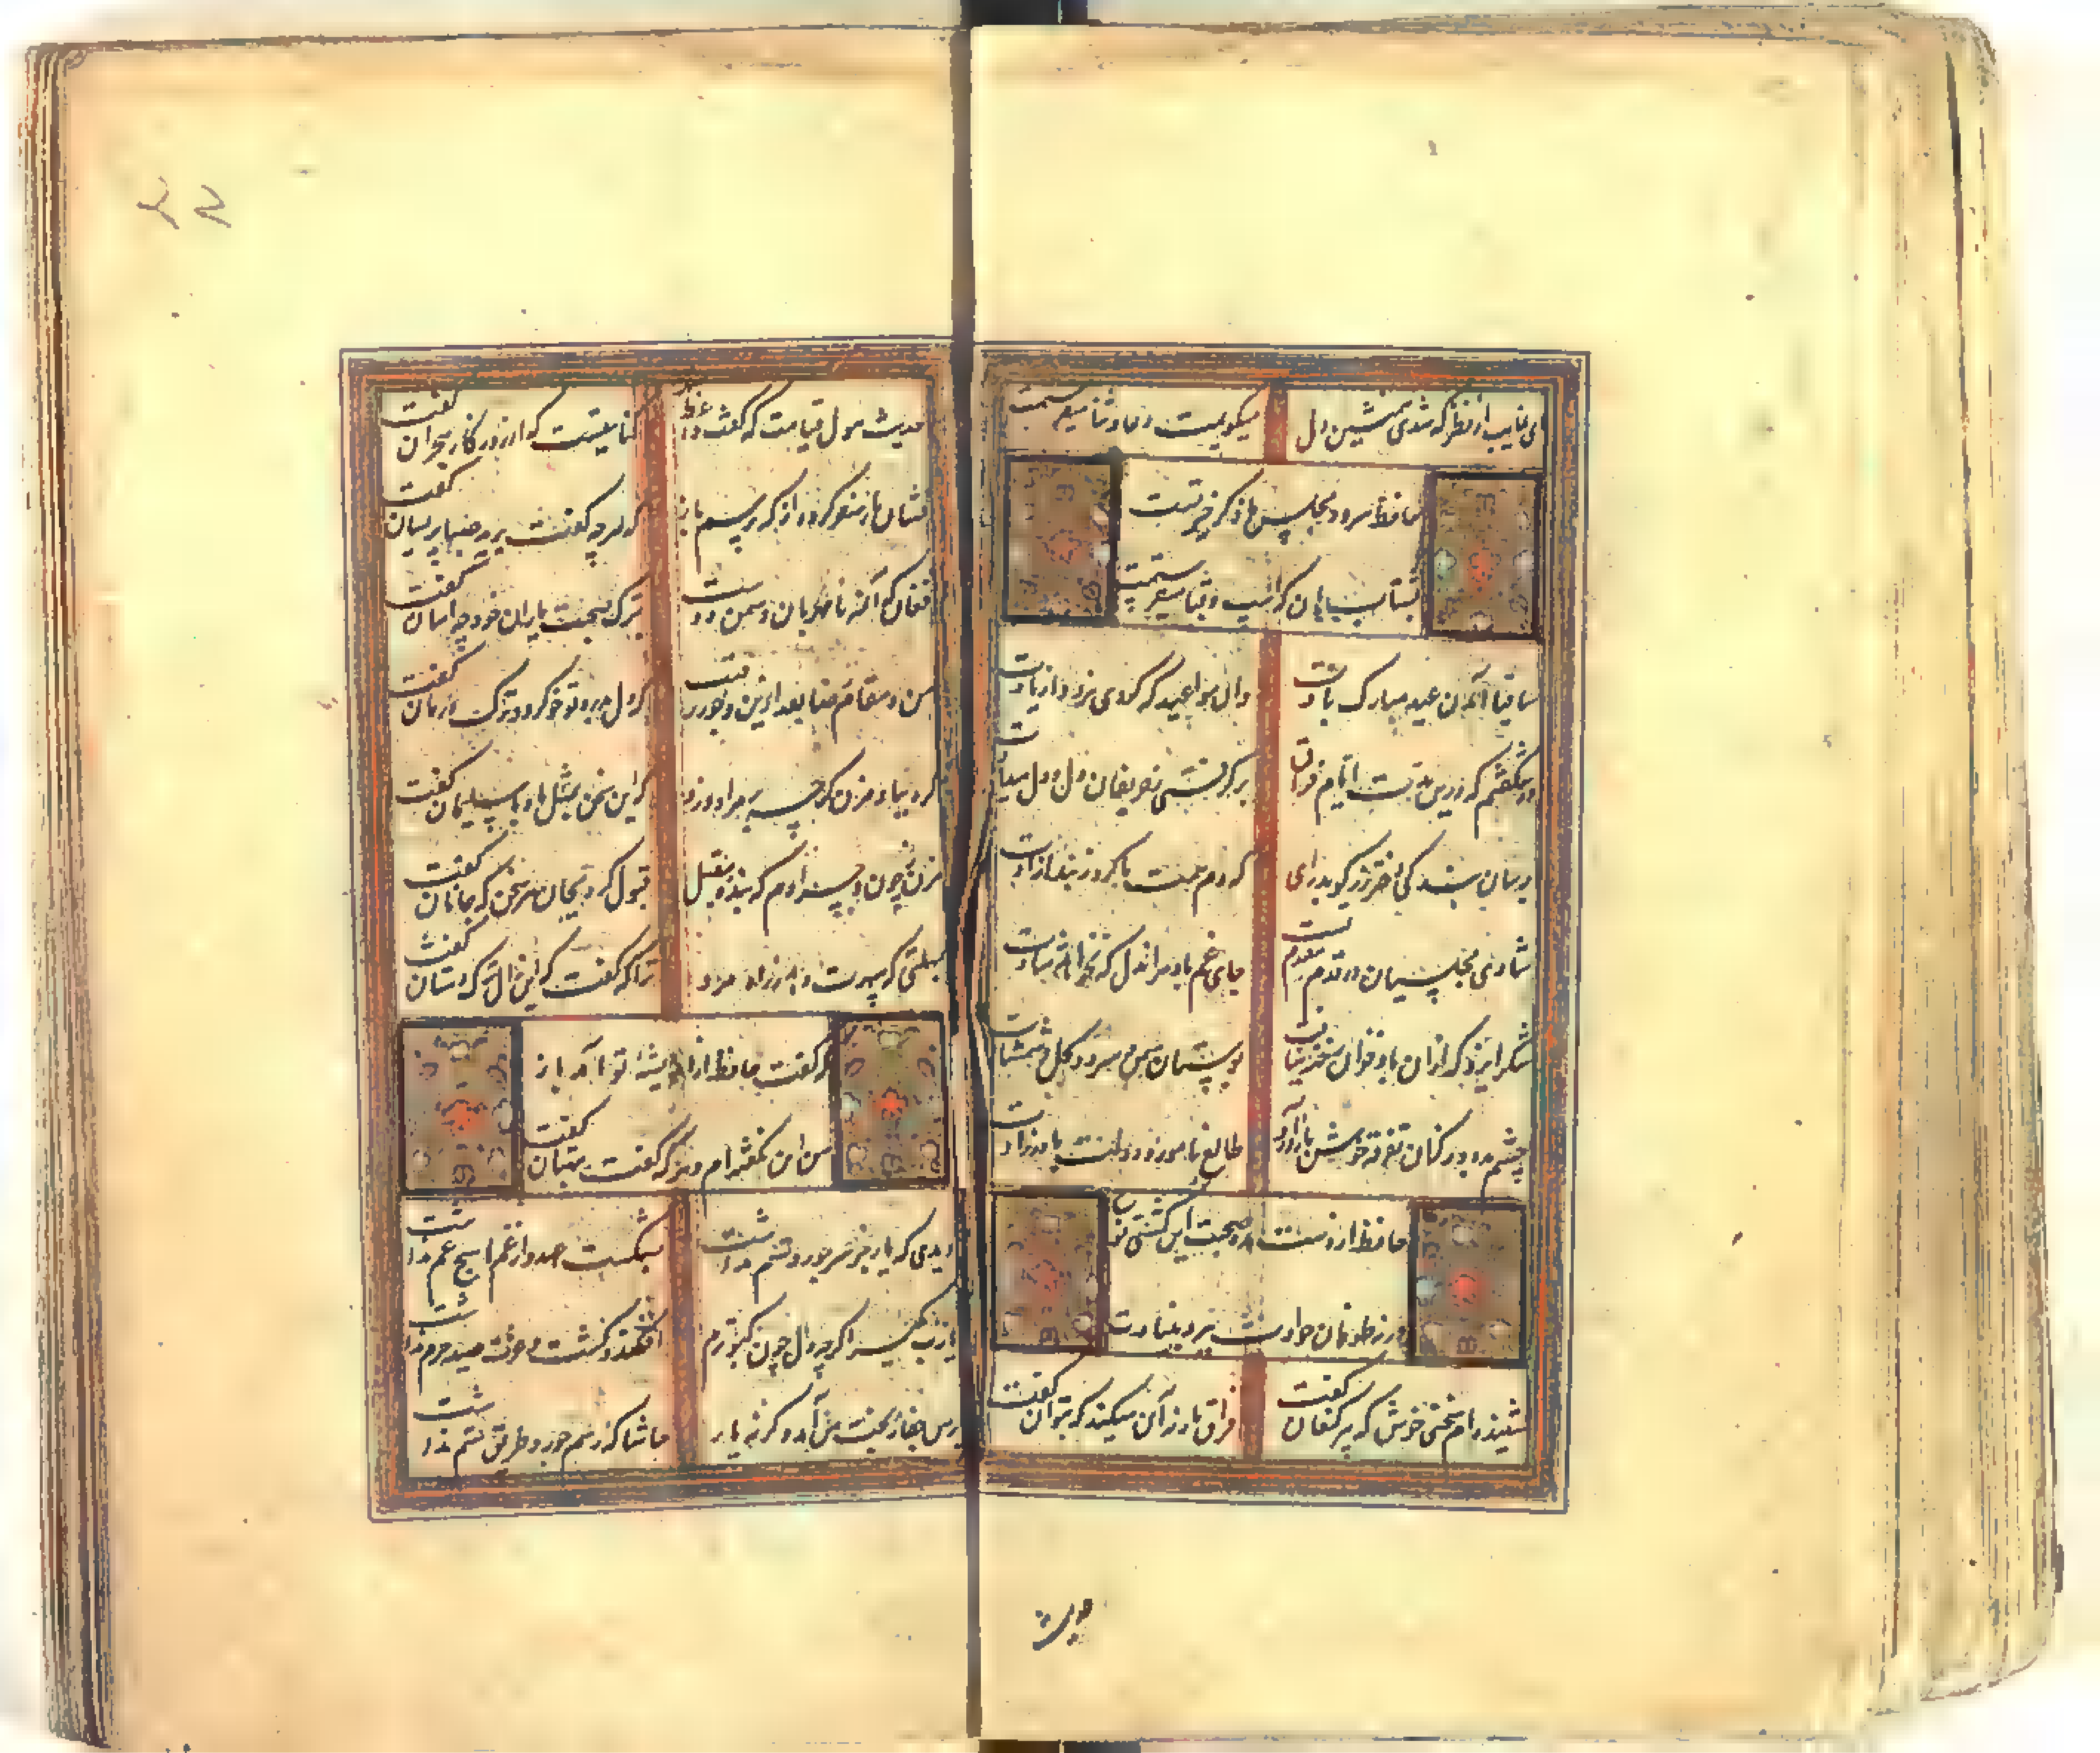 ای غایب از نظر که شدی همنشین دل میکویمت دعا و ثنا میفرستمت
حافظ سرود مجلس ما ذکر خیر تست
بشتاب هان که اسب و قبا میفرستمت
ساقیا آمدن عید مبارک بادت وان مواعید که کردی مرواد از یادت
در شکفتم که درین مدت ایام فراق برکرفتی ز حریفان دل و دل میدادت
برسان بندکی دختر رز کو بدر آی که دم همت ما کرد ز بند آزادت
شادی مجلسیان در قدم و مقدم تست جای غم باد مر آن دل که نخواهد شادت
شکر ایزد که ازان باد خزان رخنه نیافت بوستان سمن و سرو و کل و شمشادت
چشم بد دور کزان تفرقه خوش باز آورد طالع نامور و دولت مادرزادت
حافظ از دست مده صحبت این کشتی نوح
ورنه طوفان حوادث ببرد بنیادت
شنیده‌ام سخنی خوش که پیر کنعان گفت فراق یار نه آن میکند که بتوان گفت
حدیث
حدیث هول قیامت که گفت واعظ شهر کنایتیست که از روزکار هجران گفت
نشان یار سفر کرده از که پرسم باز که هرچه گفت برید صبا پریشان گفت
فغان که آن مه نامهربان دشمن دوست بترک صحبت یاران خود چه آسان گفت
من و مقام رضا بعد ازین و جور رقیب که دل بدرد تو خو کرد و ترک درمان گفت
کره بباد مزن کرچه بر مراد وزد که این سخن بمثل باد با سلیمان گفت
مزن ز چون و چرا دم که بنده مقبل قبول کرد بجان هر سخن که جانان گفت
بمهلتی که سپهرت دهد ز راه مرو ترا که گفت که این زال ترک دستان گفت
که گفت حافظ از اندیشه تو آمد باز
من این نگفته‌ام و هر که گفت بهتان گفت
دیدی که یار جز سر جور و ستم نداشت بشکست عهد و از غم ما هیچ غم نداشت
یا رب مکیرش ارچه دل چون کبوترم افکند و کشت و حرمت صید حرم نداشت
بر من جفا ز بخت من آمد و کرنه یار حاشا که رسم جور و طریق ستم نداشت